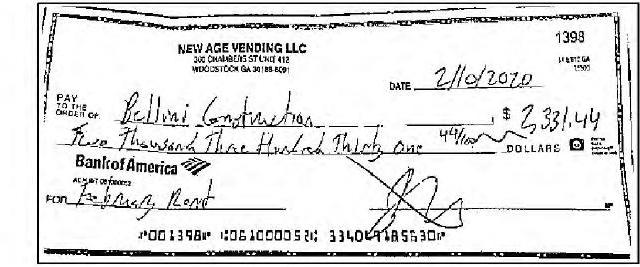 1398
NEW AGE VENDING LLC
300 CHAMBERS ST UNIT 412
WOODSTOCK GA 30188-6091
DATE 2/10/2020
PAY
TO THE
ORDER OF. Bellini Construction $ 2,331.44
Two Thousand Three Hundred Thirty one 44/100 DOLLARS
Bank of America
FOR February Rent
⑈001398⑈ ⑆061000052⑆